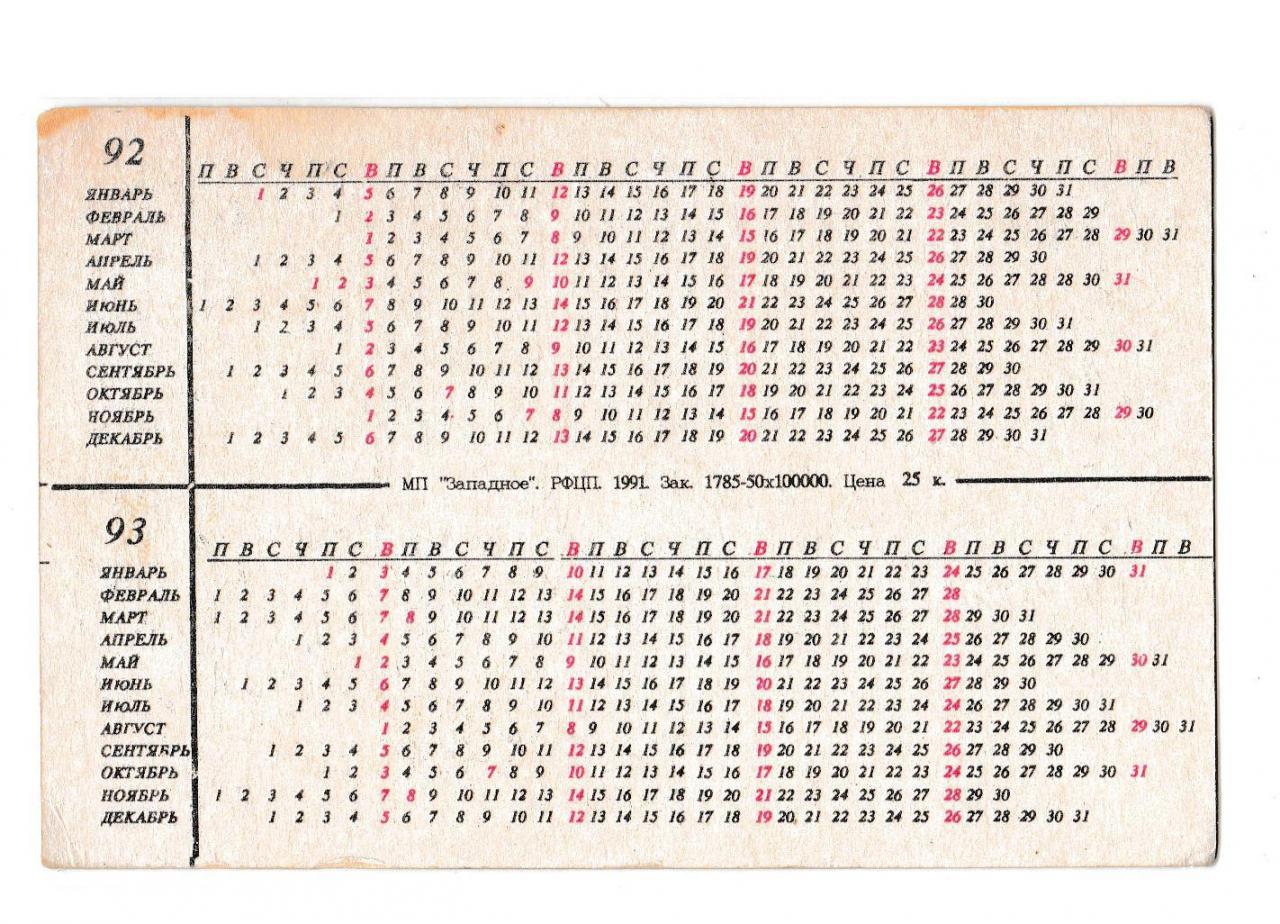 92
П В С Ч П С В П В С Ч П С В П В С Ч П С В П В С Ч П С В П В С Ч П С В П В
ЯНВАРЬ 1 2 3 4 5 6 7 8 9 10 11 12 13 14 15 16 17 18 19 20 21 22 23 24 25 26 27 28 29 30 31
ФЕВРАЛЬ 1 2 3 4 5 6 7 8 9 10 11 12 13 14 15 16 17 18 19 20 21 22 23 24 25 26 27 28 29
МАРТ 1 2 3 4 5 6 7 8 9 10 11 12 13 14 15 16 17 18 19 20 21 22 23 24 25 26 27 28 29 30 31
АПРЕЛЬ 1 2 3 4 5 6 7 8 9 10 11 12 13 14 15 16 17 18 19 20 21 22 23 24 25 26 27 28 29 30
МАЙ 1 2 3 4 5 6 7 8 9 10 11 12 13 14 15 16 17 18 19 20 21 22 23 24 25 24 25 26 27 28 29 30 31
ИЮНЬ 1 2 3 4 5 6 7 8 9 10 11 12 13 14 15 16 17 18 19 20 21 22 23 24 25 26 27 28 28 30
ИЮЛЬ 1 2 3 4 5 6 7 8 9 10 11 12 13 14 15 16 17 18 19 20 21 22 23 24 25 26 27 28 29 30 31
АВГУСТ 1 2 3 4 5 6 7 8 9 10 11 12 13 14 15 16 17 18 19 20 21 22 23 24 25 26 27 28 29 30 31
СЕНТЯБРЬ 1 2 3 4 5 6 7 8 9 10 11 12 13 14 15 16 17 18 19 20 21 22 23 24 25 26 27 28 29 30
ОКТЯБРЬ 1 2 3 4 5 6 7 8 9 10 11 12 13 14 15 16 17 18 19 20 21 22 23 24 25 26 27 28 29 30 31
НОЯБРЬ 1 2 3 4 5 6 7 8 9 10 11 12 13 14 15 16 17 18 19 20 21 22 23 24 25 26 27 28 29 30
ДЕКАБРЬ 1 2 3 4 5 6 7 8 9 10 11 12 13 14 15 16 17 18 19 20 21 22 23 24 25 26 27 28 29 30 31
МП "Западное". РФЦП. 1991. Зак. 1785-50х100000. Цена 25 к.
93
П В С Ч П С В П В С Ч П С В П В С Ч П С В П В С Ч П С В П В С Ч П С В П В
ЯНВАРЬ 1 2 3 4 5 6 7 8 9 10 11 12 13 14 15 16 17 18 19 20 21 22 23 24 25 26 27 28 29 30 31
ФЕВРАЛЬ 1 2 3 4 5 6 7 8 9 10 11 12 13 14 15 16 17 18 19 20 21 22 23 24 25 26 27 28
МАРТ 1 2 3 4 5 6 7 8 9 10 11 12 13 14 15 16 17 18 19 20 21 22 23 24 25 26 27 28 29 30 31
АПРЕЛЬ 1 2 3 4 5 6 7 8 9 10 11 12 13 14 15 16 17 18 19 20 21 22 23 24 25 26 27 28 29 30
МАЙ 1 2 3 4 5 6 7 8 9 10 11 12 13 14 15 16 17 18 19 20 21 22 23 24 25 26 27 28 29 30 31
ИЮНЬ 1 2 3 4 5 6 7 8 9 10 11 12 13 14 15 16 17 18 19 20 21 22 23 24 25 26 27 28 29 30
ИЮЛЬ 1 2 3 4 5 6 7 8 9 10 11 12 13 14 15 16 17 18 19 20 21 22 23 24 24 26 27 28 29 30 31
АВГУСТ 1 2 3 4 5 6 7 8 9 10 11 12 13 14 15 16 17 18 19 20 21 22 23 24 25 26 27 28 29 30 31
СЕНТЯБРЬ 1 2 3 4 5 6 7 8 9 10 11 12 13 14 15 16 17 18 19 20 21 22 23 24 25 26 27 28 29 30
ОКТЯБРЬ 1 2 3 4 5 6 7 8 9 10 11 12 13 14 15 16 17 18 19 20 21 22 23 24 25 26 27 28 29 30 31
НОЯБРЬ 1 2 3 4 5 6 7 8 9 10 11 12 13 14 15 16 17 18 19 20 21 22 23 24 25 26 27 28 29 30
ДЕКАБРЬ 1 2 3 4 5 6 7 8 9 10 11 12 13 14 15 16 17 18 19 20 21 22 23 24 25 26 27 28 29 30 31